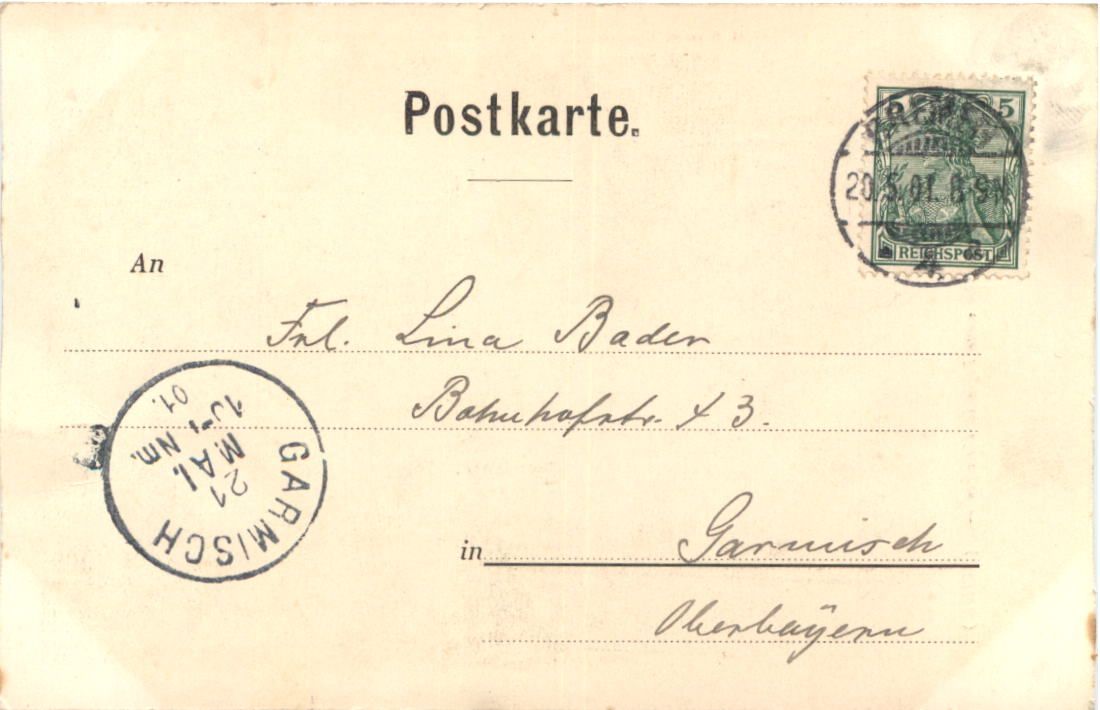 Postkarte.
5
20.5.01. 8-9N
REICHSPOST
An
Frl. Lina Bader
Bahnhofstr. 43.
in Garmisch
Oberbayern
GARMISCH
21
MAI.
Nm.
01.